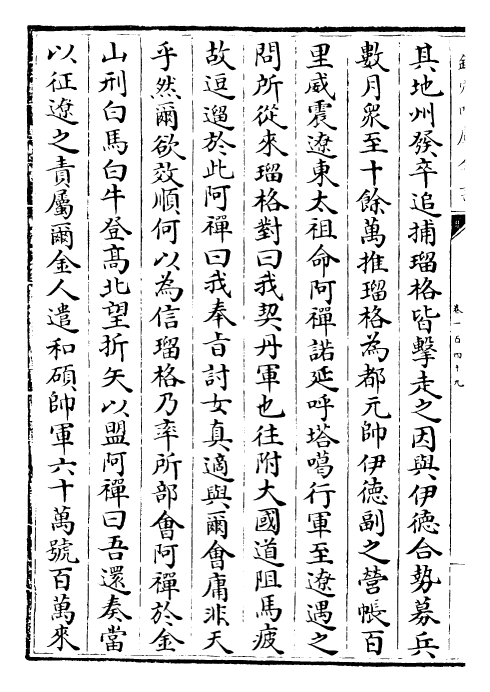 欽定四庫全書
卷一百四十九
其地州發卒追捕瑠格皆擊走之因與伊德合勢募兵
數月衆至十餘萬推瑠格為都元帥伊德副之營帳百
里威震遼東太祖命阿禪諾延呼塔噶行軍至遼遇之
問所從來瑠格對曰我契丹軍也往附大國道阻馬疲
故逗遛於此阿禪曰我奉旨討女真適與爾會庸非天
乎然爾欲效順何以為信瑠格乃率所部會阿禪於金
山刑白馬白牛登髙北望折矢以盟阿禪曰吾還奏當
以征遼之責屬爾金人遣和碩帥軍六十萬號百萬來